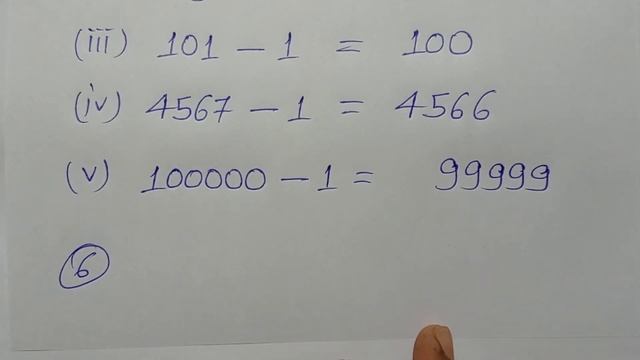 (iii) 101 - 1 = 100
(iv) 4567 - 1 = 4566
(v) 100000 - 1 = 99999
6